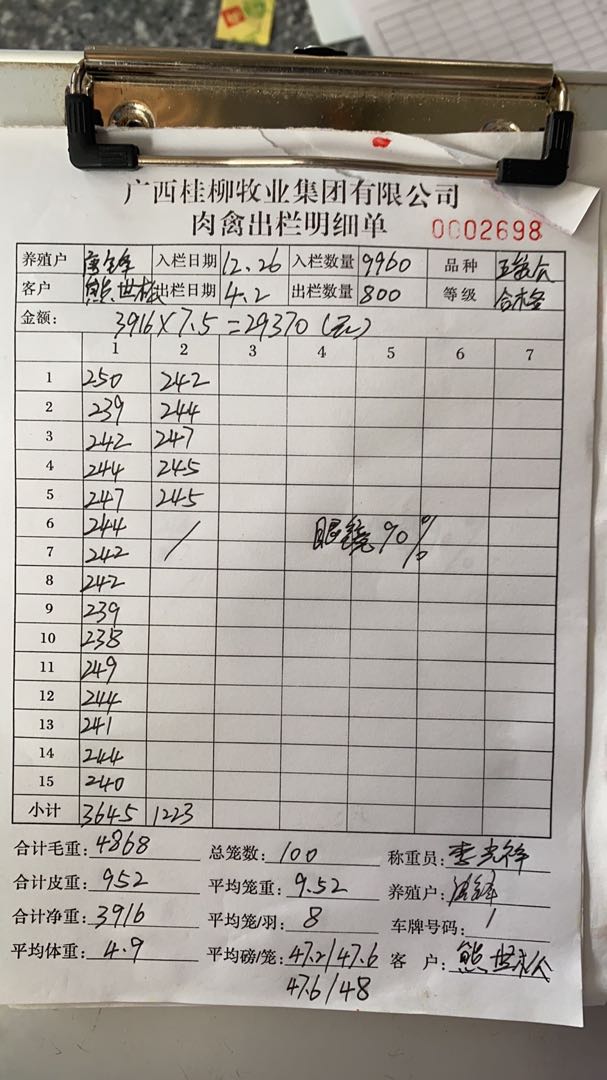 广西桂柳牧业集团有限公司
肉禽出栏明细单 0002698
养殖户 入栏日期 12.26 入栏数量 9960 品种
客户 熊世 出栏日期 4.2 出栏数量 800 等级 合格
金额: 3916×7.5=29370(元)
1 2 3 4 5 6 7
1 250 242
2 239 244
3 242 247
4 244 245
5 247 245
6 244 眼镜90%
7 242 /
8 242
9 239
10 238
11 249
12 244
13 241
14 244
15 240
小计 3645 1223
合计毛重: 4868 总笼数: 100 称重员: 李光祥
合计皮重: 952 平均笼重: 9.52 养殖户:
合计净重: 3916 平均笼/羽: 8 车牌号码: 1
平均体重: 4.9 平均磅/笼: 47.2/47.6 客户: 熊世
47.6/48